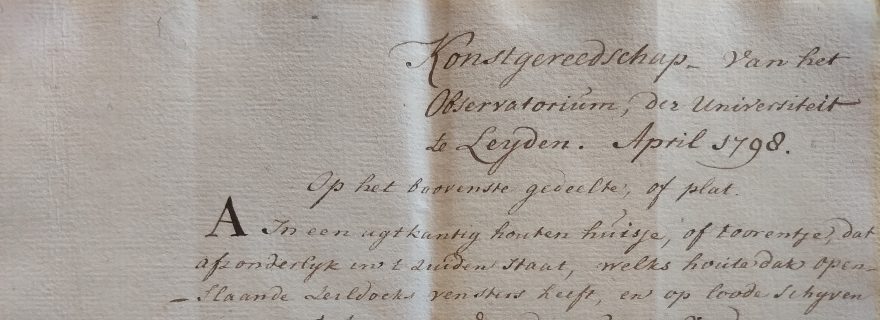 Konstgereedschap - van het
Observatorium, der Universiteit
te Leyden. April 1798.
Op het boovenste gedeelte, of plat.
A In een agtkantig houten huisje, of toorentje, dat
afzonderlyk in 't Zuiden staat, welks houte dak open-
slaande Zeildoeks vensters heeft, en op loode schyven